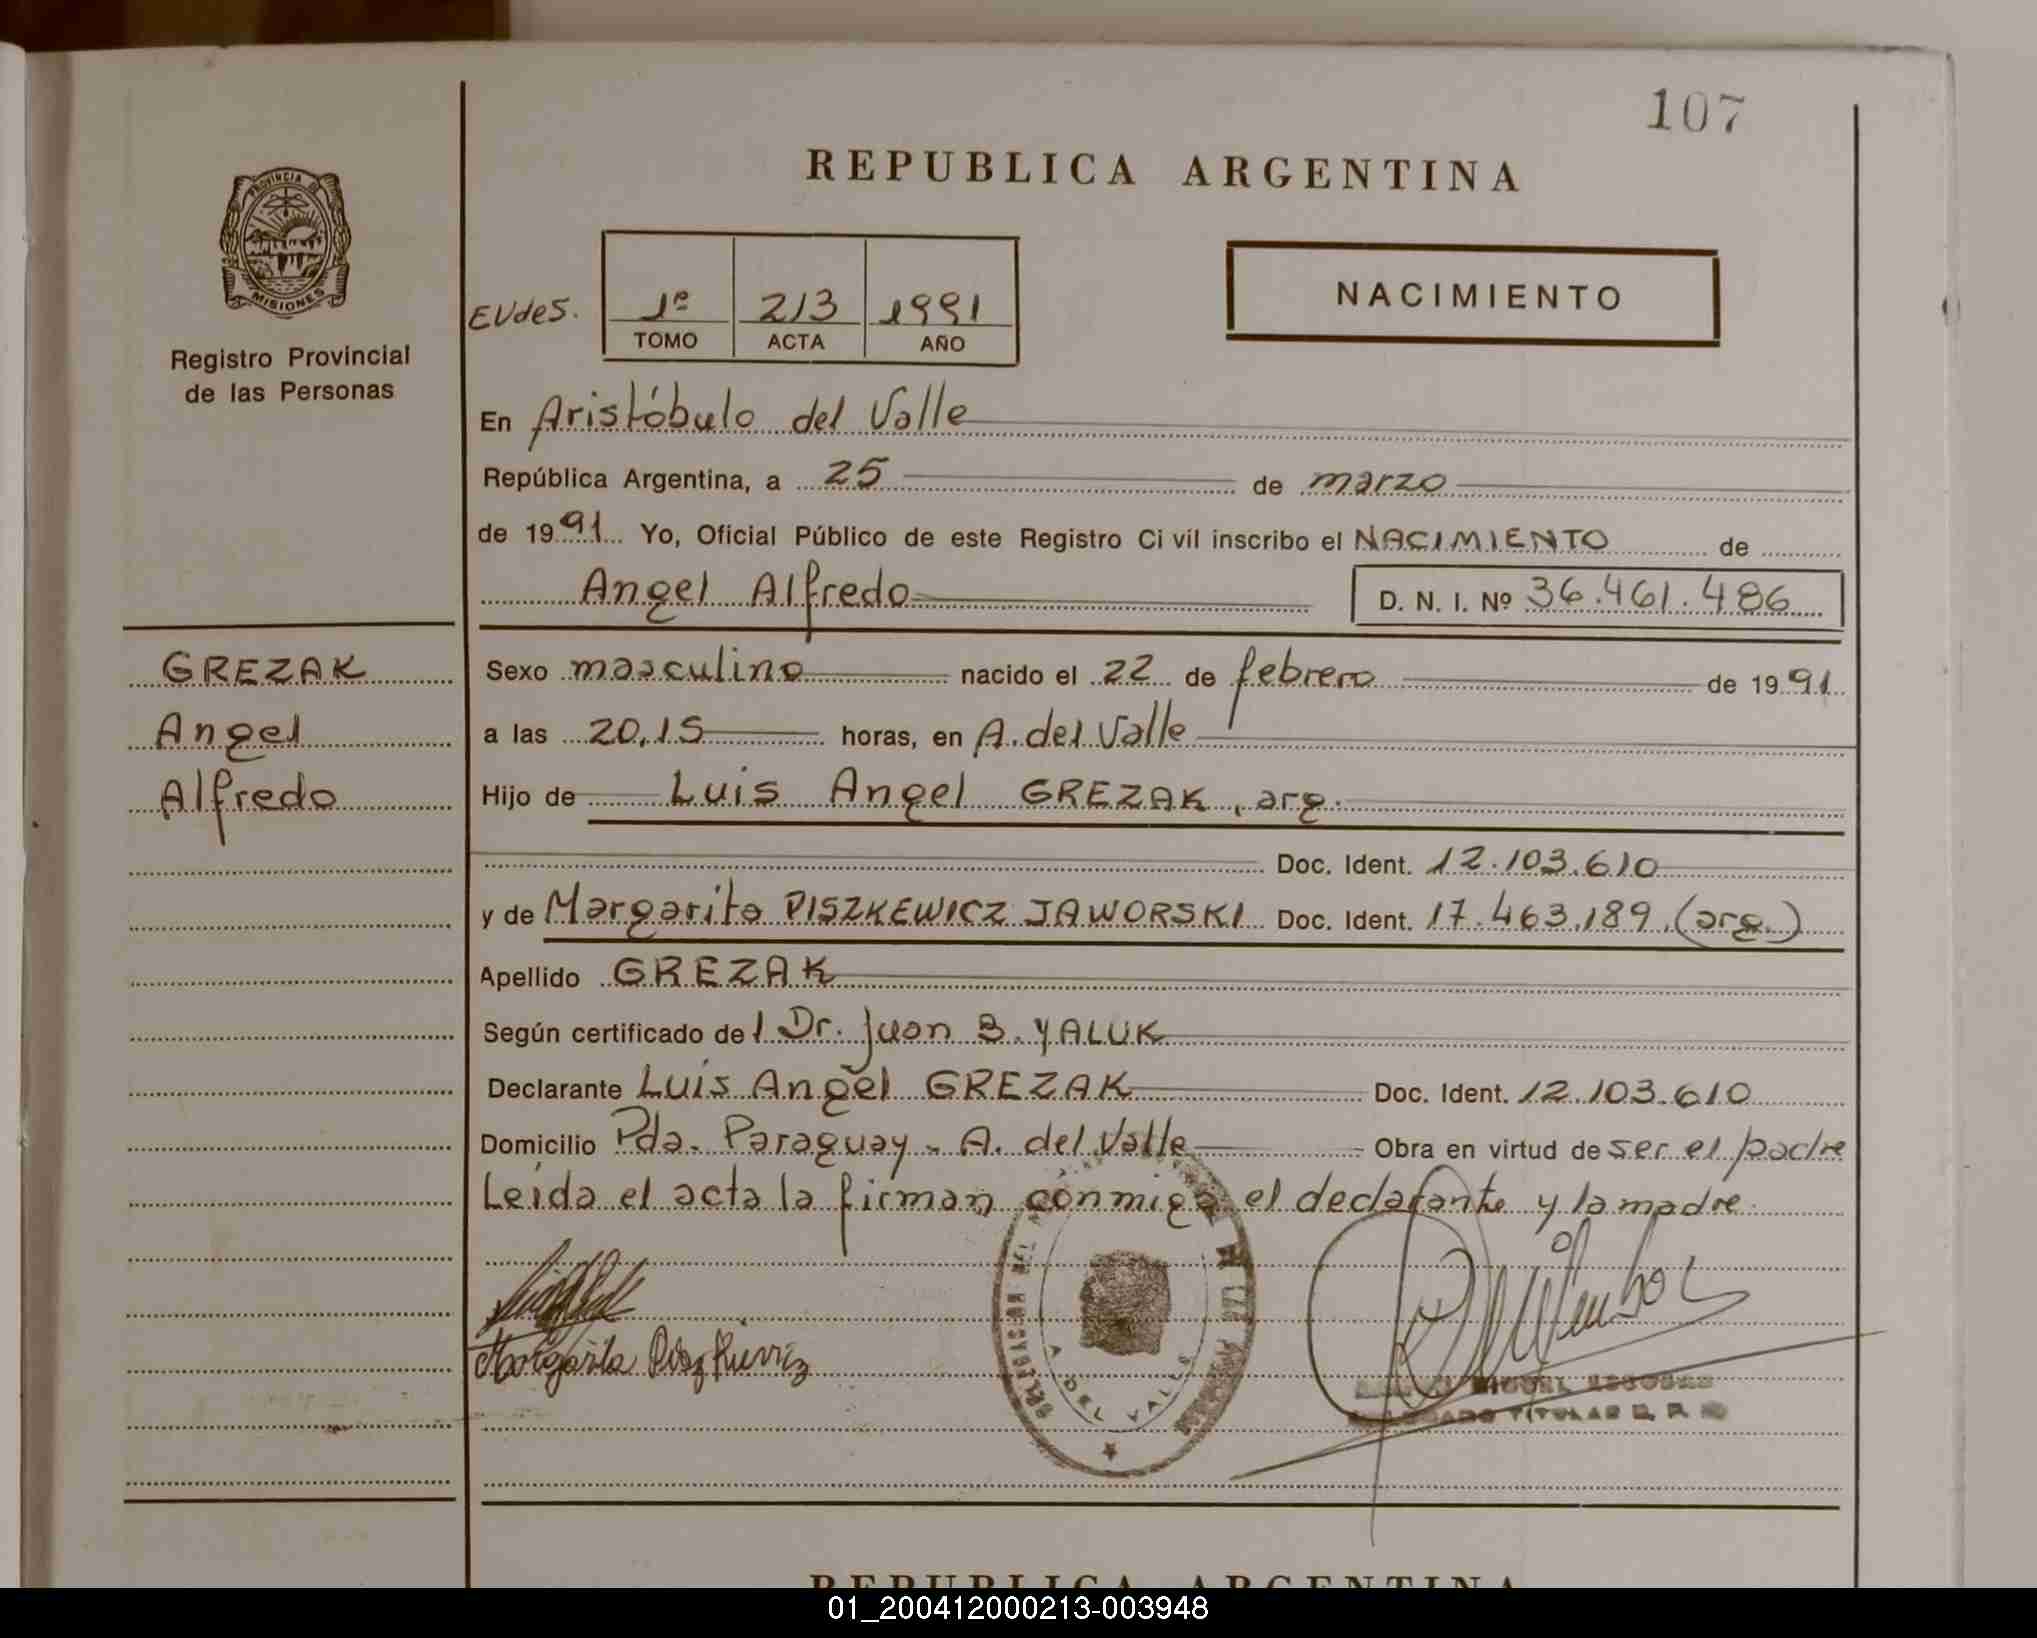 107
REPUBLICA ARGENTINA
PROVINCIA DE
MISIONES
Registro Provincial
de las Personas
EUdeS.
1º 213 1991
TOMO ACTA AÑO
NACIMIENTO
En Aristóbulo del Valle
República Argentina, a 25 de marzo
de 1991 Yo, Oficial Público de este Registro Civil inscribo el NACIMIENTO de
Angel Alfredo D. N. I. Nº 36.461.486
GREZAK
Angel
Alfredo
Sexo masculino nacido el 22 de febrero de 1991
a las 20,15 horas, en A. del Valle
Hijo de Luis Angel GREZAK, arg.
Doc. Ident. 12.103.610
y de Margarita PISZKEWICZ JAWORSKI Doc. Ident. 17.463.189 (arg.)
Apellido GREZAK
Según certificado del Dr. Juan B. YALUK
Declarante Luis Angel GREZAK Doc. Ident. 12.103.610
Domicilio Pda. Paraguay - A. del Valle Obra en virtud de ser el padre
Leída el acta la firman conmigo el declarante y la madre.
Margarita
DELEGACION DEL
A. DEL VALLE
MIGUEL ESCOBAR
TITULAR R. P.
REPUBLICA ARGENTINA
01_200412000213-003948